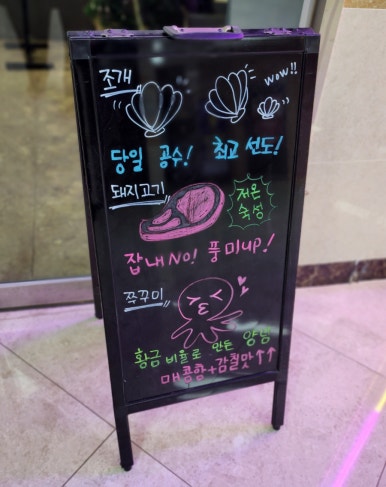 조개
wow!!
당일 공수! 최고 선도!
돼지고기
저온
숙성
잡내No! 풍미up!
쭈꾸미
황금 비율로 만든 양념
매콤함+감칠맛↑↑